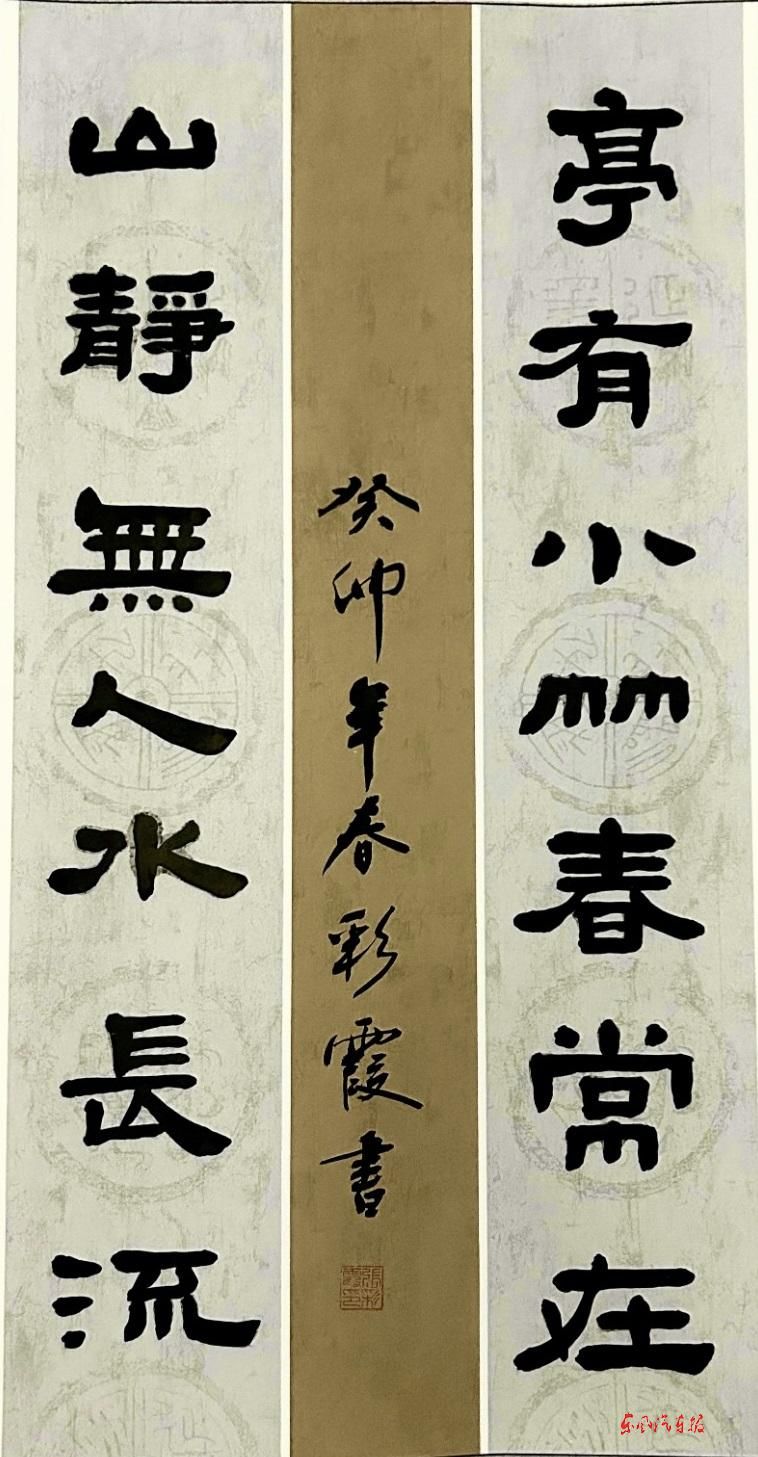 亭有小竹春常在
山靜無人水長流
癸卯年春彩霞書
張彩霞印
东风汽车报